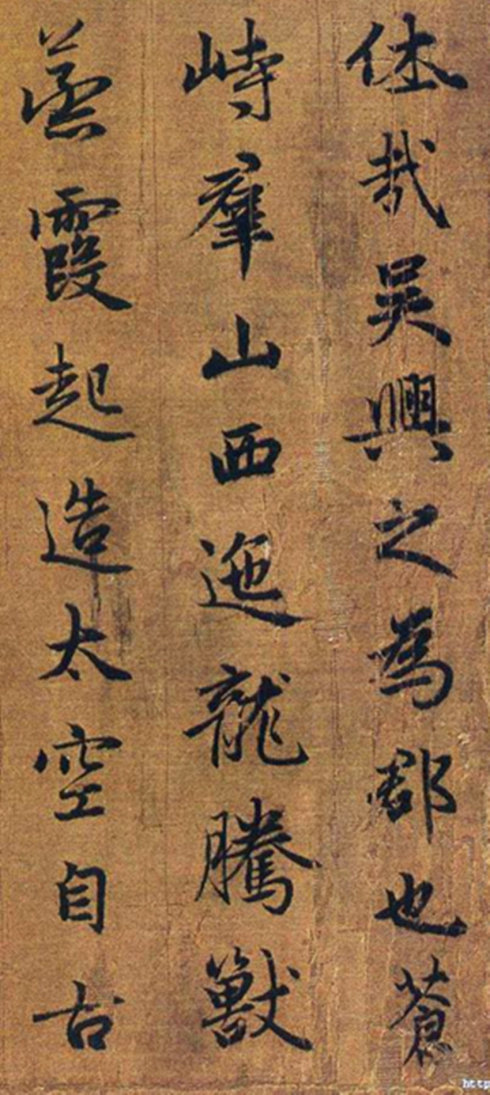 休哉吴興之為郡也蒼
峙羣山西迤龍騰獸
蒸霞起造太空自古
http